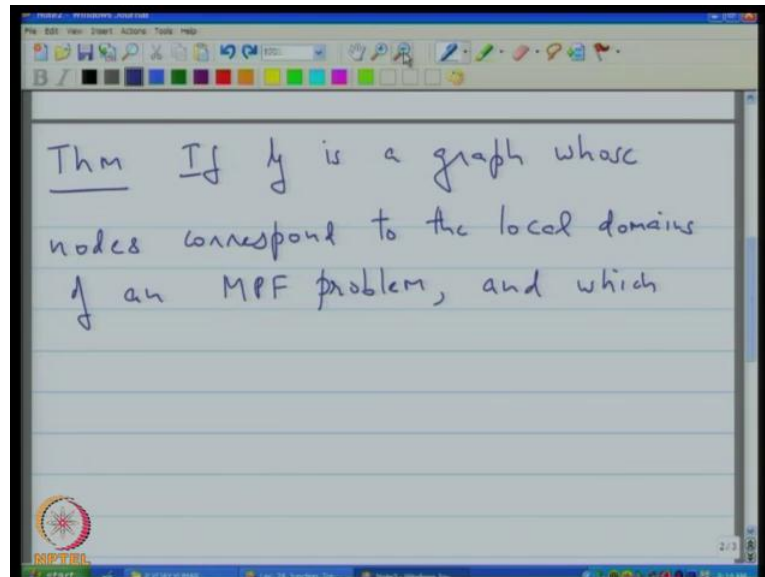 Note2 - Windows Journal
File Edit View Insert Actions Tools Help
B I
Thm If G is a graph whose
nodes correspond to the local domains
of an MPF problem, and which
2/3
NPTEL
start